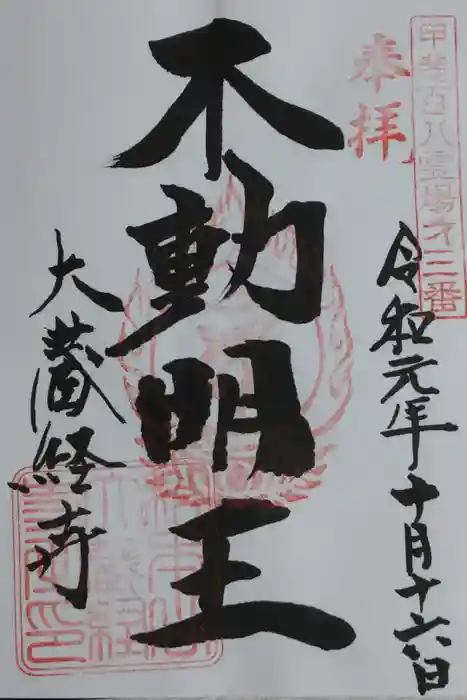 甲斐百八霊場才三番
奉拝
令和元年十月十六日
不動明王
大蔵経寺